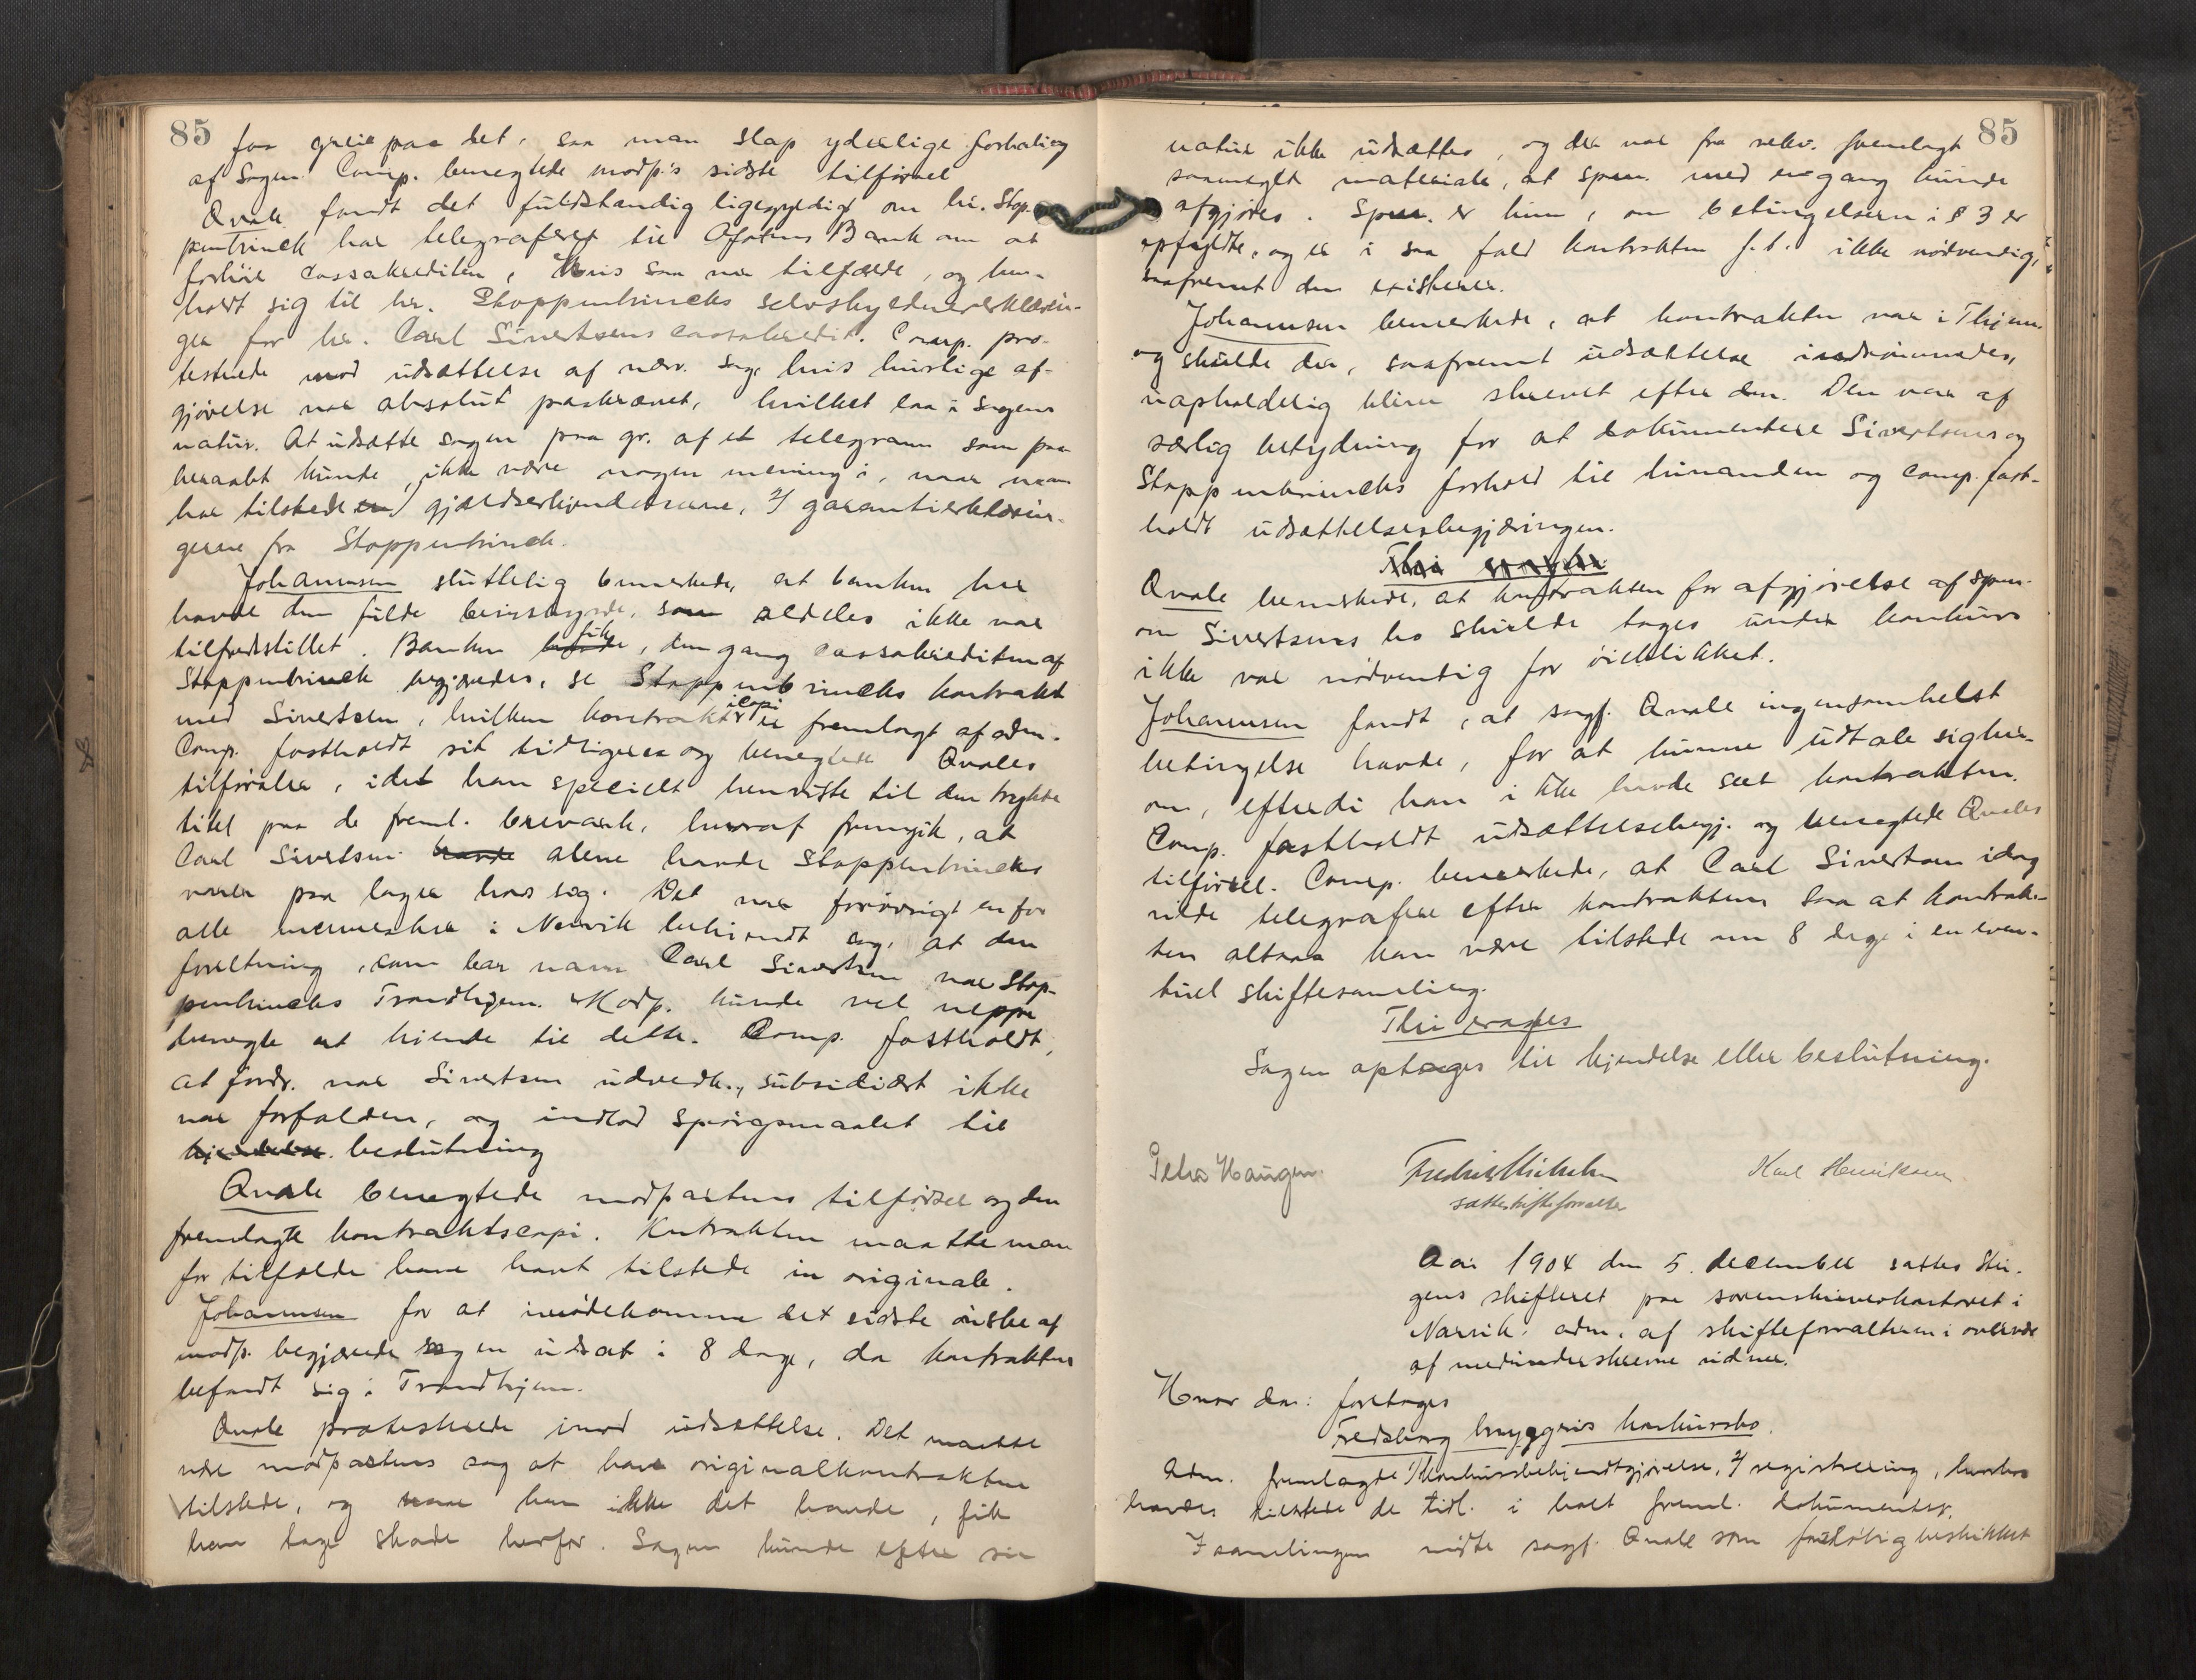 85
faa greie paa det, saa man slap yderlige forhaling
af sagen. Comp. benegtede modp.'s sidste tilførsel
Qvale fandt det fuldstændig ligegyldigt om hr. Stop-
penbrinck har telegraferet til Ofotens Bank om at
forhøie cassakrediten, hvis saa var tilfælde, og hen-
holdt sig til hr. Stoppenbrincks selvskyldnererklærin-
ger for hr. Carl Sivertsens cassakredit. Comp. pro-
testerede mod udsættelse af nærv. sag, hvis hurtige af-
gjørelse var absolut paakrævet, hvilket laa i sagens
natur. At udsætte sagen paa gr. af et telegram som paa-
beraabt kunde ikke være nogen mening i, naar man
har tilstede gjældserkjendelserne, 2/ garantierklærin-
gerne fra Stoppenbrinck.
Johannesen sluttelig bemerkede, at banken her
havde den fulde bevisbyrde, som aldeles ikke var
tilfredsstillet. Banken fik, dengang cassakrediten af
Stoppenbrinck begjæredes, se Stoppenbrincks kontrakt
med Sivertsen, hvilken kontrakt i copi er fremlagt af adm.
Comp. fastholdt sit tidligere og benegtede Qvales
tilførsler, idet han specielt henviste til den trykte
titel paa de freml. brevark, hvoraf fremgik, at
Carl Sivertsen havde alene havde Stoppenbrincks
varer paa lager hos sig. Det var forøvrigt en for
alle mennesker i Narvik bekjendt sag, at den
forretning, som bar navn Carl Sivertsen var Stop-
penbrincks Trondhjem. Modp. kunde vel neppe
benegte at kjende til dette. Comp. fastholdt,
at fordr. var Sivertsen uvedk., subsidiært ikke
var forfalden, og indlod spørgsmaalet til
kjendelse. beslutning
Qvale benegtede modpartens tilførsel og den
fremlagte kontraktscopi. Kntrakten maatte man
for tilfælde have havt tilstede in originale.
Johannesen for at imødekomme det sidste ønske af
modp. begjærede sagen udsat i 8 dage, da kontrakten
befandt sig i Trondhjem.
Qvale protesterede imod udsættelse. Det maatte
være modpartens sag at have originalkontrakten
tilstede, og naar han ikke det havde, fik
han tage skade herfor. Sagen kunde efter sin
85
natur ikke udsættes, og der var fra rekv. fremlagt
saameget materiale, at spm. med engang kunde
afgjøres. Spm. er kun, om betingelsern i § 3 er
opfyldte, og er i saa fald kontrakten f.t. ikke nødvendig,
saafremt den existerer.
Johannesen bemerkede, at kontrakten var i Thjem.
og skulde der, saafremt udsættelse indrømmedes,
uopholdelig blive skrevet efter den. Den var af
særlig betydning for at dokumentere Sivertsens og
Stoppenbrincks forhold til hinanden og comp. fast-
holdt udsættelsesbegjæringen.
Thi
Qvale bemerkede, at kontrakten for afgjørelse af spm.
om Sivertsens bo skulde tages under konkurs
ikke var nødvendig for øieblikket.
Johannesen fandt, at sagf. Qvale ingensomhelst
betingelse havde, for at kunne udtale sig her-
om, efterdi han ikke havde seet kontrakten.
Comp. fastholdt udsættelsesbegj. og benegtede Qvales
tilførsel. Comp. bemerkede, at Carl Sivertsen idag
vilde telegrafere efter kontrakten saa at kontrak-
ten altsaa kan være tilstede om 8 dage i en even-
tuel skiftesamling.
Thi eragtes
Sagen optages til kjendelse eller beslutning.
Peder Haugen. Fredrik Michelsen Karl Henriksen
sætteskifteforvalter
Aar 1904 den 5. december sattes Stei-
gens skifteret paa sorenskriverkontoret i
Narvik, adm. af skifteforvalteren i overvær
af medunderskrevne vidner.
Hvor da: foretoges
Fredsborg bryggeris konkursbo.
Adm. fremlagde 1/ konkursbekjendtgjørelse, 2/ registrering, hvorhos
havdes tilstede de tidl. i boet freml. dokumenter.
I samlingen mødte sagf. Qvale som foreløbig beskikket